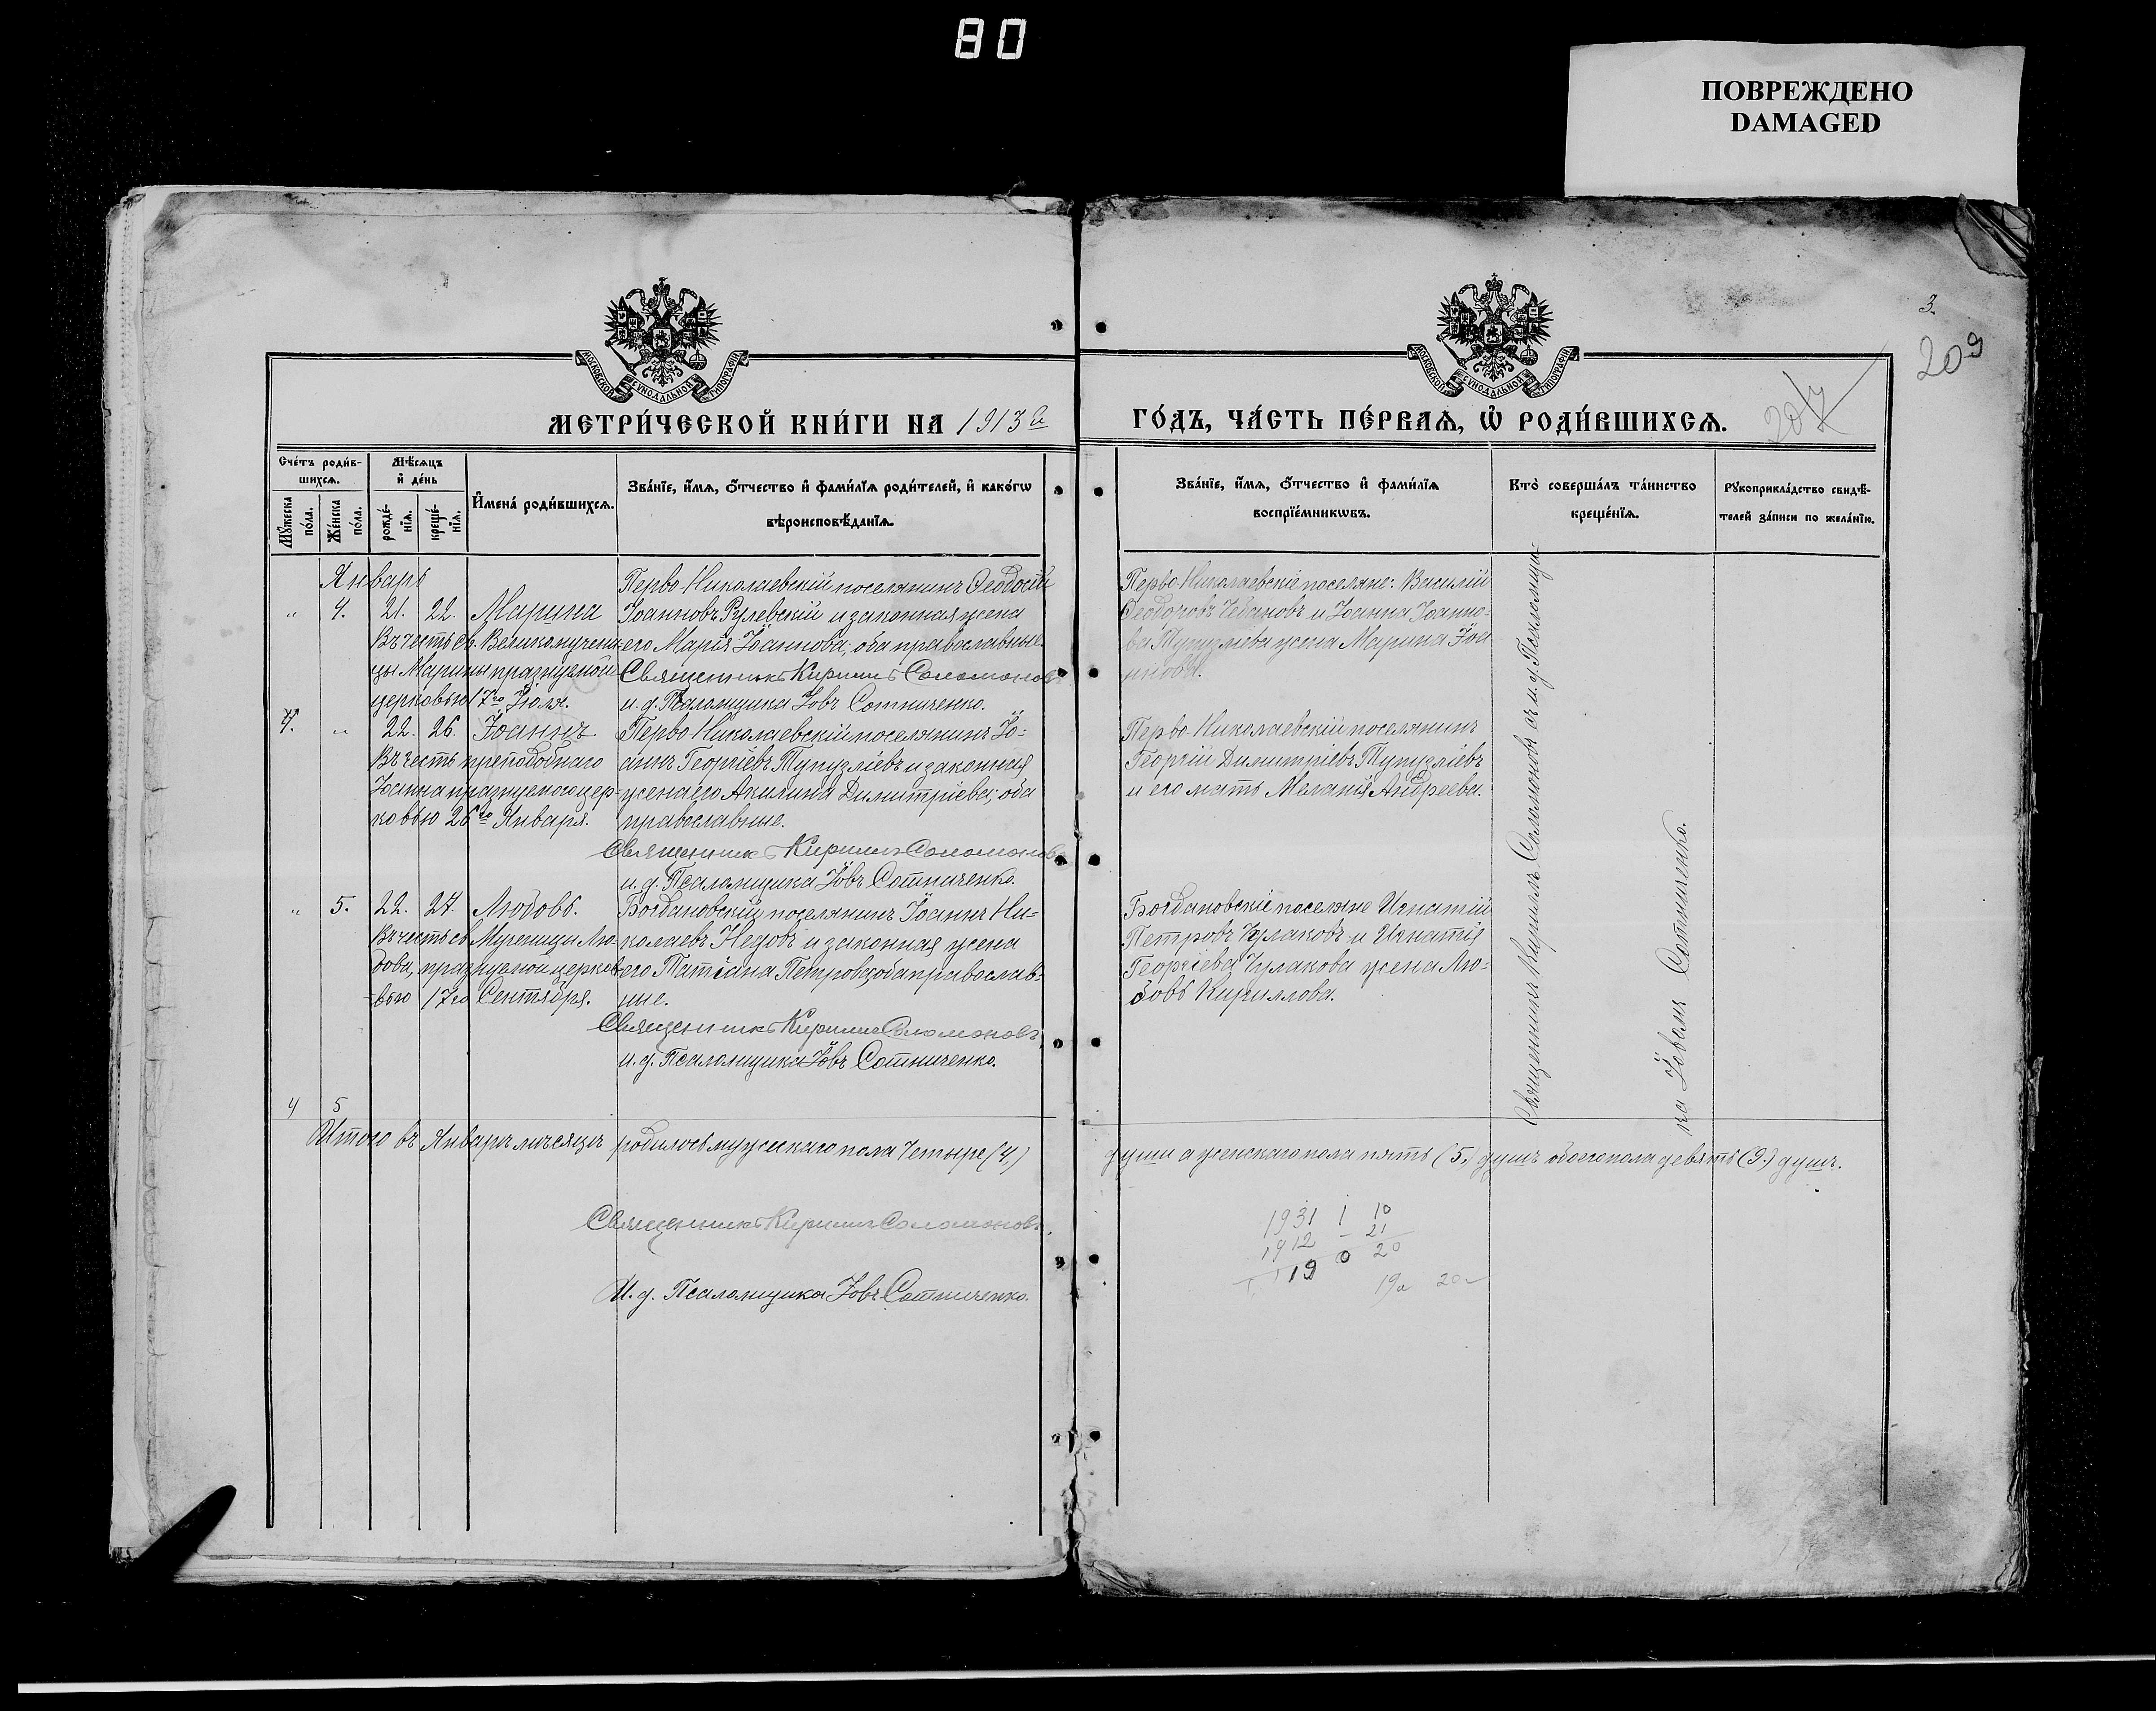 80
ПОВРЕЖДЕНО
DAMAGED
3.
209
207
МОСКОВСКОЙ СѴНОДАЛЬНОЙ ТИПОГРАФІИ
МОСКОВСКОЙ СѴНОДАЛЬНОЙ ТИПОГРАФІИ
МЕТРИ́ЧЕСКОЙ КНИ́ГИ НА 1913й
ГО́ДЪ, ЧА́СТЬ ПЕ́РВАѦ, Ѡ҆ РОДИ́ВШИХСѦ.
Сче́тъ роди́в-
шихсѧ.
Мꙋ́жеска по́ла.
Же́нска по́ла.
Мѣ́сѧцъ
и҆ де́нь
рожде́-
нїѧ.
креще́-
нїѧ.
И҆мена̀ роди́вшихсѧ.
Зва́нїе, и҆́мѧ, ѻ҆́тчество и҆ фами́лїѧ роди́телей, и҆ како́гѡ
вѣроисповѣ́данїѧ.
Зва́нїе, и҆́мѧ, ѻ҆́тчество и҆ фами́лїѧ
воспрїе́мникѡвъ.
Кто̀ соверша́лъ та́инство
креще́нїѧ.
Рꙋкоприкла́дство свидѣ́-
телей за́писи по жела́нїю.
Январь
" 4. 21. 22. Марина
Въ честь св. Великомучени-
цы Марины празнуемой
церковью 17го Іюля.
Перво-Николаевскій поселянинъ Ѳеодосій
Іоанновъ Рулевскій и законная жена
его Марія Іоаннова, оба православные.
Священникъ Кириллъ Соломоновъ
и. д. Псаломщика Іовъ Сотниченко.
Перво-Николаевскіе поселяне: Василій
Ѳеодоровъ Чебановъ и Іоанна Іоанно-
ва Тупузліева жена Марина Іоа
ннова.
4. " 22. 26. Іоаннъ
Въ честь преподобнаго
Іоанна празнуемого цер-
ковью 26го Января.
Перво Николаевскій поселянинъ Іо-
аннъ Георгіевъ Тупузліевъ и законная
жена его Акилина Димитріева, оба
православные.
Священникъ Кириллъ Соломоновъ
и. д. Псаломщика Іовъ Сотниченко.
Перво-Николаевскій поселянинъ
Георгій Димитріевъ Тупузліевъ
и его мать Меланія Андреева.
" 5. 22. 27. Любовь.
Въ честь св Мученицы Лю-
бови, празнуемой церко-
вью 17го Сентября.
Богдановскій поселянинъ Іоаннъ Ни-
колаевъ Недовъ и законная жена
его Татіана Петрова, оба православ-
ные.
Священникъ Кириллъ Соломоновъ
и. д. Псаломщика Іовъ Сотниченко.
Богдановскіе поселяне Игнатій
Петровъ Кулаковъ и Игнатія
Георгіева Кулакова жена Лю-
бовь Кириллова.
Священникъ Кириллъ Соломоновъ съ и. д. Псаломщи-
ка Іовомъ Сотниченко.
4 5
Итого въ Январѣ мѣсяцѣ родилось мужескаго пола Четыре (4,)
души а женскаго пола пять (5,) душъ обоего пола девять (9.) душъ.
Священникъ Кириллъ Соломоновъ.
И. д. Псаломщика Іовъ Сотниченко.
1931 1 10
1912 – 21
19 0 20
19 20